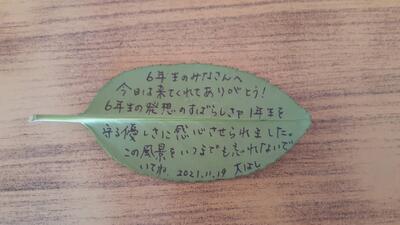 6年生のみなさんへ
今日は来てくれてありがとう!
6年生の発想のすばらしさや1年生を
守る優しさに感心させられました。
この風景をいつまでも忘れないで
いてね。2021.11.19 大はし